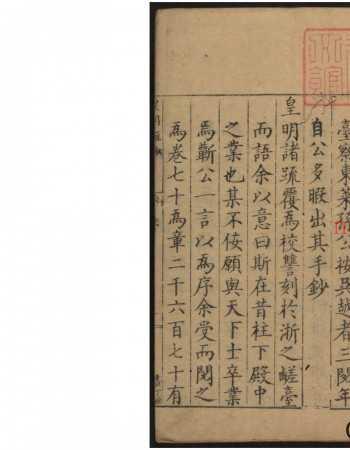 臺察東萊孫公按吳越者三閱年
自公多暇出其手鈔
皇明諸疏覆爲校讐刻於浙之嵯臺
而語余以意曰斯在昔柱下殿中
之業也某不佞願與天下士卒業
焉蘄公一言以爲序余受而閱之
爲卷七十爲章二千六百七十有